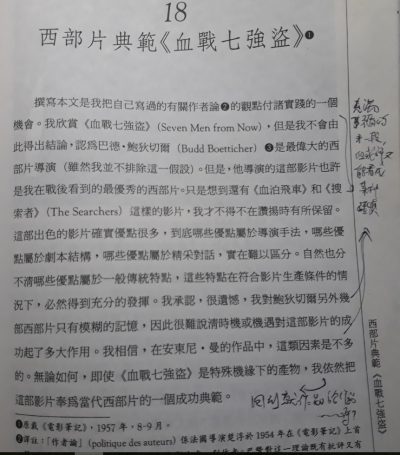 18
西部片典範《血戰七強盜》❶
撰寫本文是我把自己寫過的有關作者論❷的觀點付諸實踐的一個
機會。我欣賞《血戰七強盜》(Seven Men from Now),但是我不會由
此得出結論,認爲巴德·鮑狄切爾(Budd Boetticher)❸是最偉大的西
部片導演(雖然我並不排除這一假設)。但是,他導演的這部影片也許
是我在戰後看到的最優秀的西部片。只是想到還有《血泊飛車》和《搜
索者》(The Searchers)這樣的影片,我才不得不在讚揚時有所保留。
這部出色的影片確實優點很多,到底哪些優點屬於導演手法,哪些優
點屬於劇本結構,哪些優點屬於精采對話,實在難以區分。自然也分
不清哪些優點屬於一般傳統特點,這些特點在符合影片生產條件的情
況下,必然得到充分的發揮。我承認,很遺憾,我對鮑狄切爾另外幾
部西部片只有模糊的記憶,因此很難說清時機或機遇對這部影片的成
功起了多大作用。我相信,在安東尼·曼的作品中,這類因素是不多
的。無論如何,即使《血戰七強盜》是特殊機緣下的產物,我依然把
這部影片奉爲當代西部片的一個成功典範。
❶原載《電影筆記》,1957 年,8-9 月。
❷譯註:「作者論」(politique des auteurs)係法國導演楚浮於 1954 年在《電影筆記》上首
西部片典範《血戰七強盜》